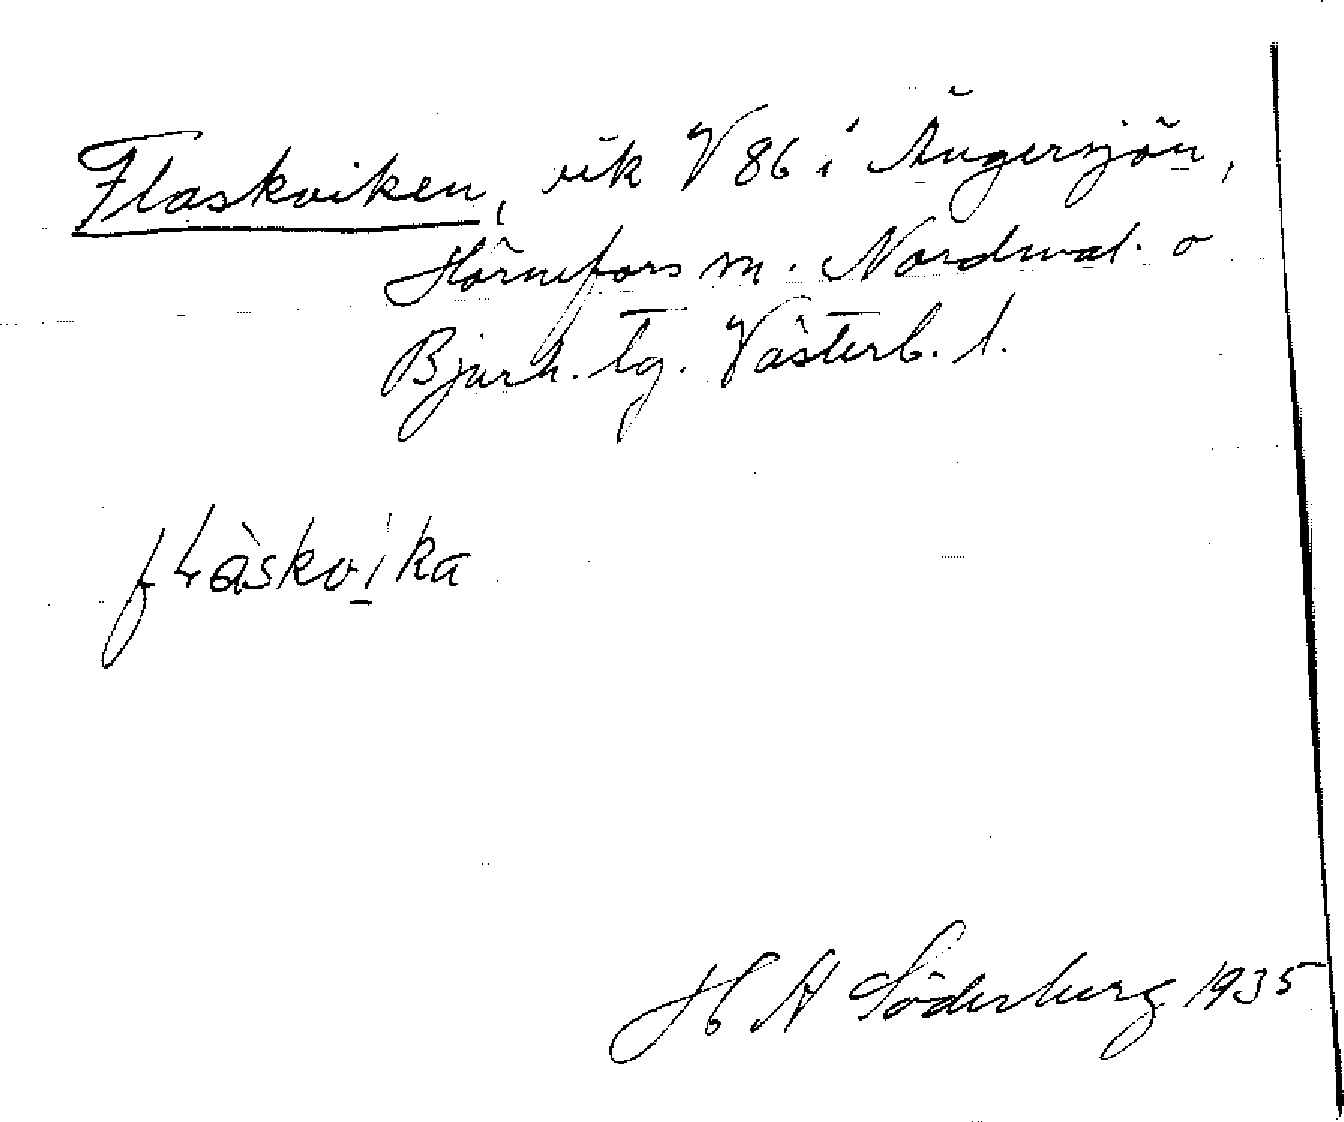 Flaskviken, vik V 86 i Ängersjön,
Hörnefors sn. Nordmal. o
Bjurh. tg. Västerb. l.
fLàskvi̱ka
H A Söderberg 1935